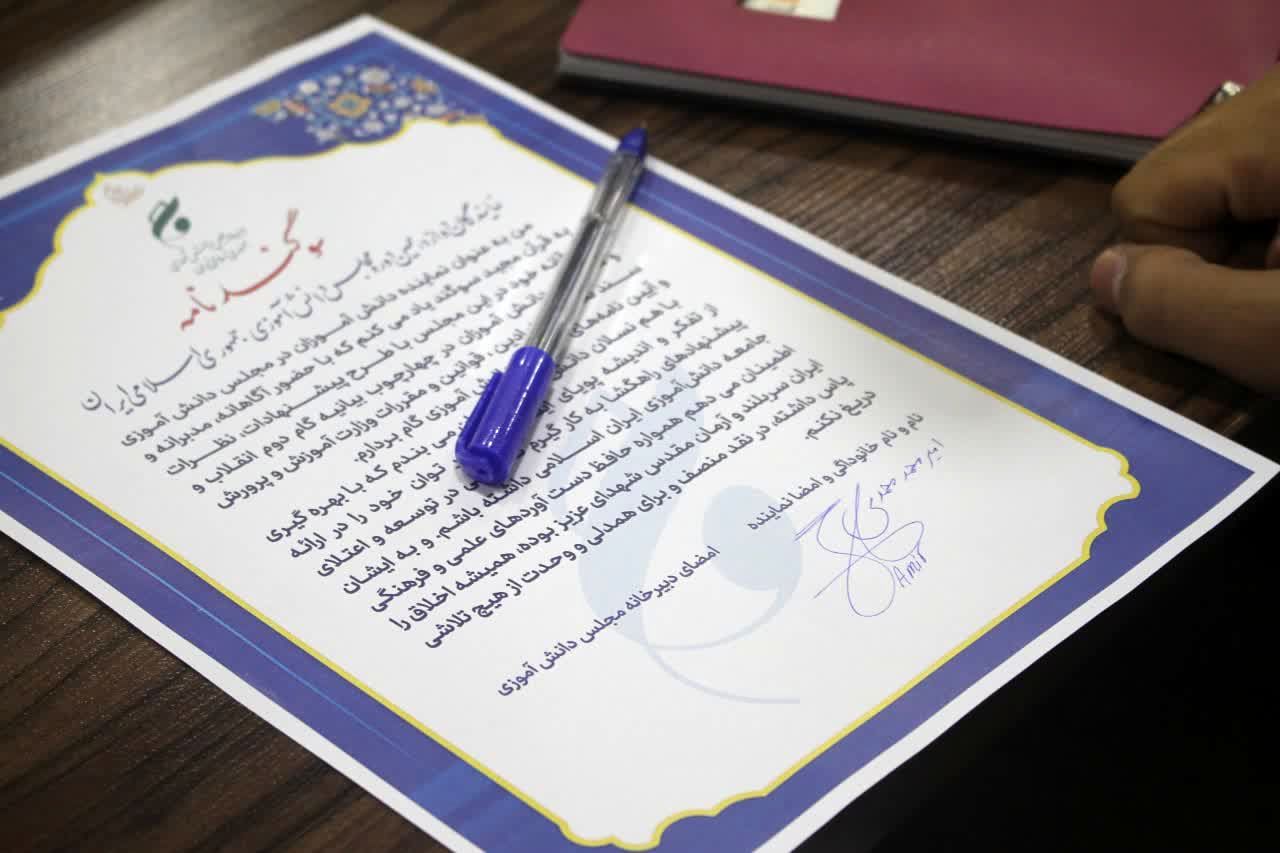 سوگندنامه
نمایندگان دوازدهمین دوره مجلس دانش‌آموزی جمهوری اسلامی ایران
من به عنوان نماینده دانش آموزان در مجلس دانش آموزی
به قرآن مجید سوگند یاد می کنم که با حضور آگاهانه، مدبرانه و
خود در این مجلس با طرح پیشنهادات، نظرات
دانش آموزان در چهارچوب بیانیه گام دوم انقلاب و
قوانین و مقررات وزارت آموزش و پرورش
آموزی گام بردارم.
و این
با هم نسلان می بندم که با بهره گیری
از تفکر و اندیشه پویای توان خود را در ارائه
پیشنهادهای راهگشا به کار گیرم در توسعه و اعتلای
جامعه دانش‌آموزی ایران اسلامی داشته باشم. و به ایشان
اطمینان می دهم همواره حافظ دست آوردهای علمی و فرهنگی
ایران سربلند و آرمان مقدس شهدای عزیز بوده، همیشه اخلاق را
پاس داشته، در نقد منصف و برای همدلی و وحدت از هیچ تلاشی
دریغ نکنم.
نام و نام خانوادگی و امضا نماینده
امیر محمد
Amir
امضای دبیرخانه مجلس دانش آموزی